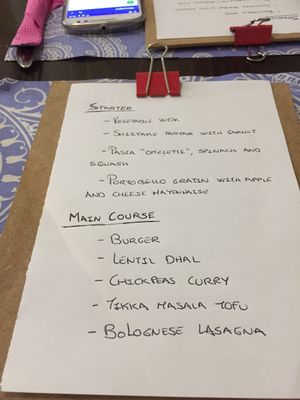 STARTER
- VEGETABLE WOK
- SHIITAKE TARTAR WITH GARNET
- PASTA "OMELETTE", SPINACH AND
SQUASH
- PORTOBELLO GRATIN WITH APPLE
AND CHEESE MAYONNAISE
MAIN COURSE
- BURGER
- LENTIL DHAL
- CHICKPEAS CURRY
- TIKKA MASALA TOFU
- BOLOGNESE LASAGNA